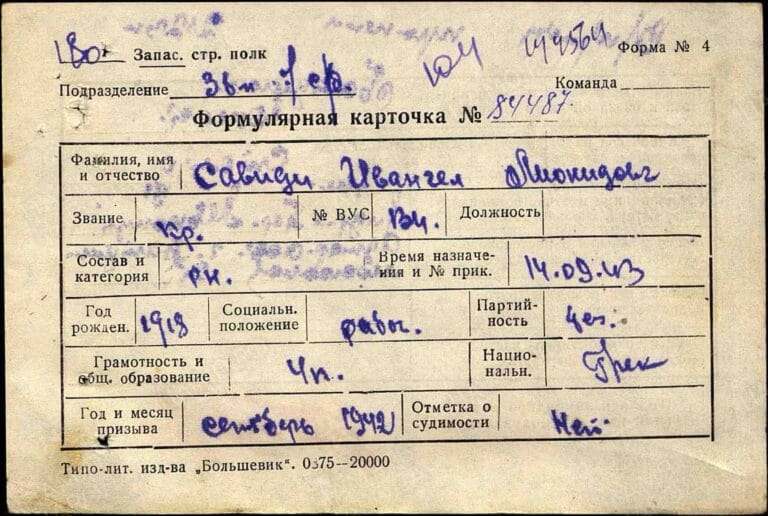 180 Запас. стр. полк Форма № 4
Подразделение Команда
Формулярная карточка № 84487.
Фамилия, имя и отчество Савиди Ивангел Лионидовг
Звание кр. № ВУС Вч. Должность
Состав и категория рк. Время назначения и № прик. 14.09.43
Год рожден. 1918 Социальн. положение рабоч. Партийность
Грамотность и общ. образование 4п. Национальн. Грек
Год и месяц призыва сентябрь 1942 Отметка о судимости Нет.
Типо-лит. изд-ва „Большевик“. 0375—20000